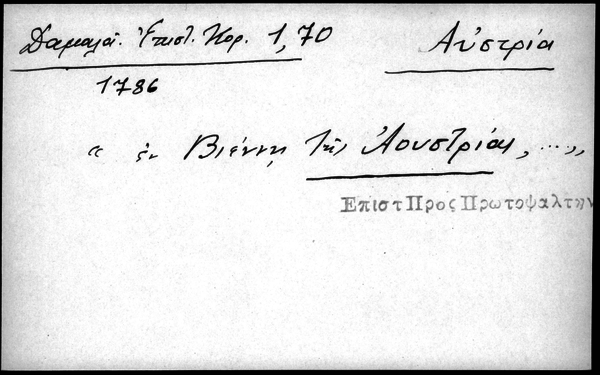 Δαμαλᾶ. Ἐπιστ. Κορ. 1,70 Αὐστρία
1786
“ ἐν Βιέννῃ τῆς Ἀουστρίας, ...,,
Επιστ Προς Πρωτοψαλτην